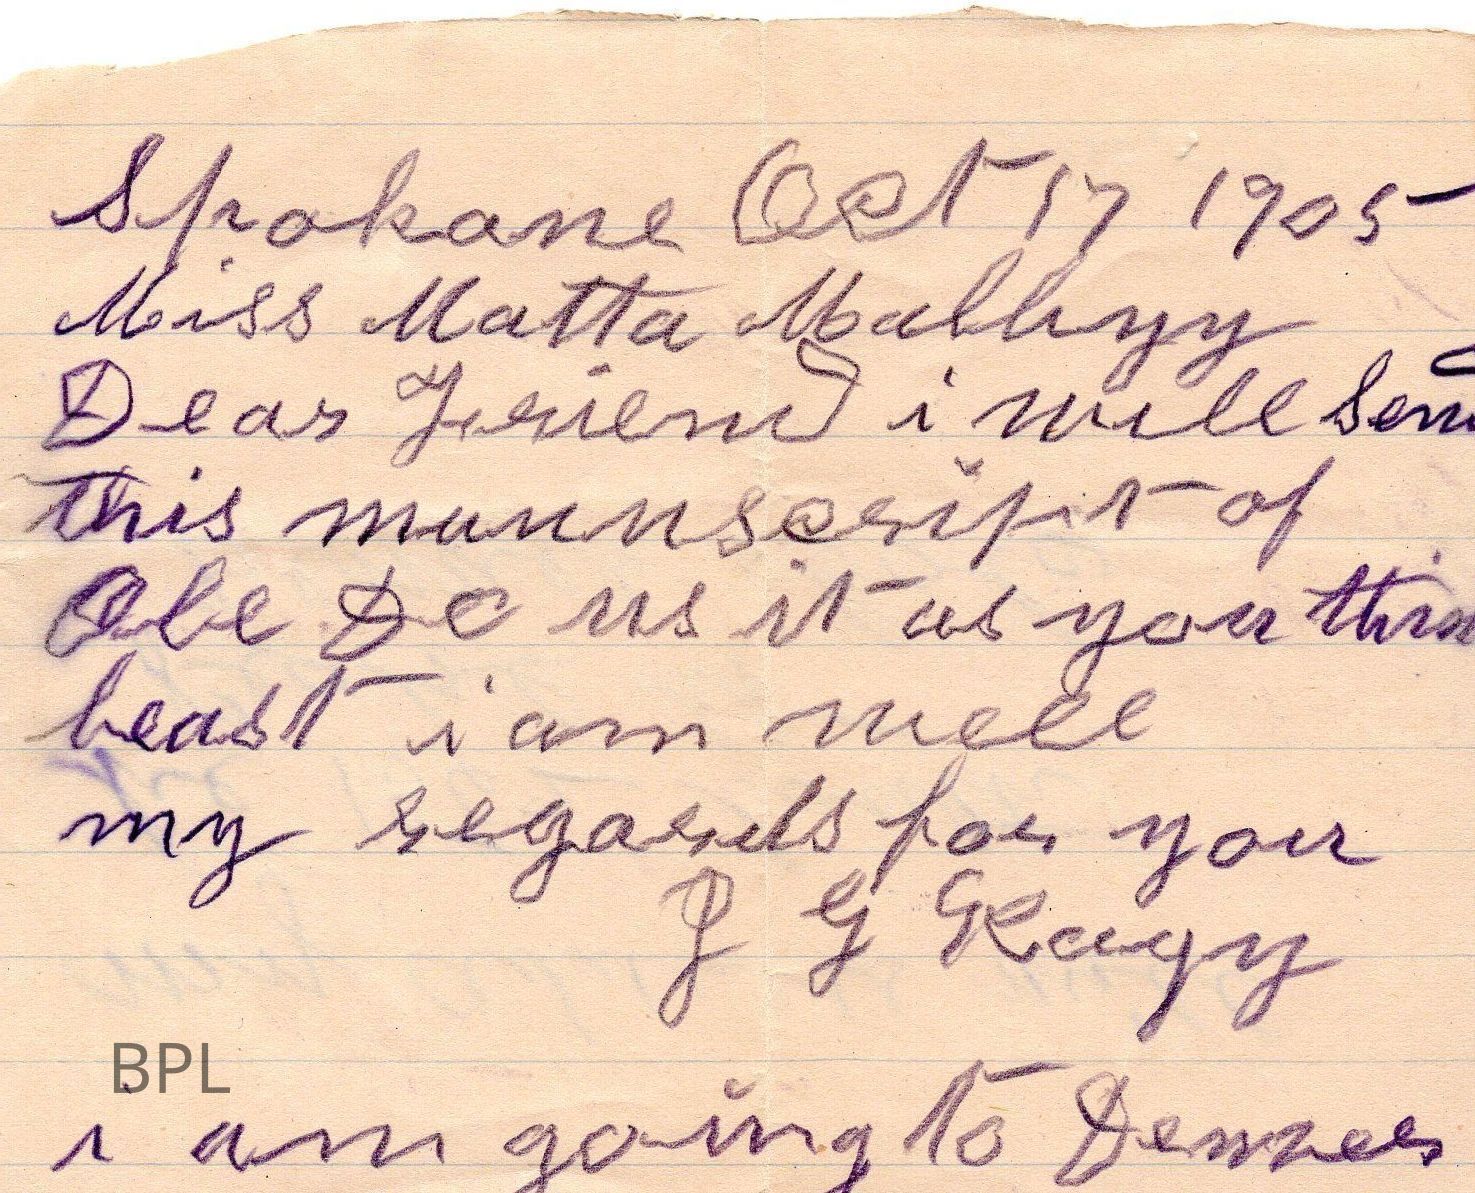 Spokane Oct 17 1905
Miss Matta Malluyy
Dear Friend i will Send
this manuscript of
Abe Do us it as you thin
beast i am well
my regards for you
J G Ragy
BPL
i am going to Denver